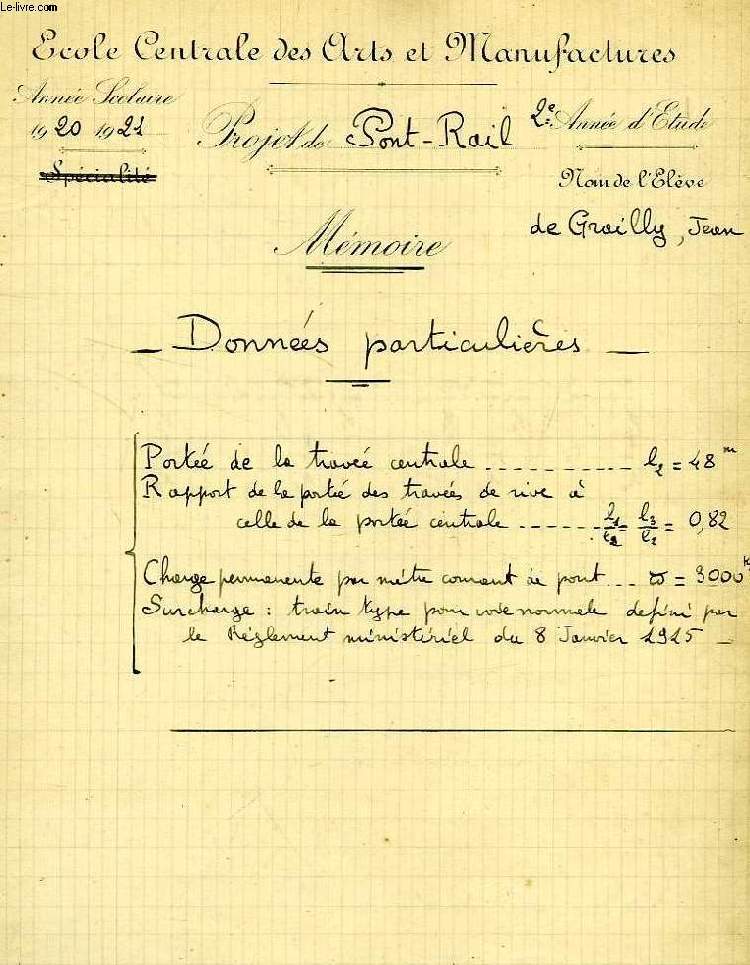 Le-livre.com
Ecole Centrale des Arts et Manufactures
Année Scolaire
1920 1921
Projet de Pont-Rail
2e Année d'Etude
Spécialité
Nom de l'Elève
de Grailly, Jean
Mémoire
— Données particulières —
Portée de la travée centrale ---------- l2 = 48 m
Rapport de la portée des travées de rive à
celle de la portée centrale ------ l1/l2 = l3/l2 = 0,82
Charge permanente par mètre courant de pont --- ϖ = 3000 K
Surcharge : train type pour voie normale defini par
le Règlement ministériel du 8 Janvier 1915 —